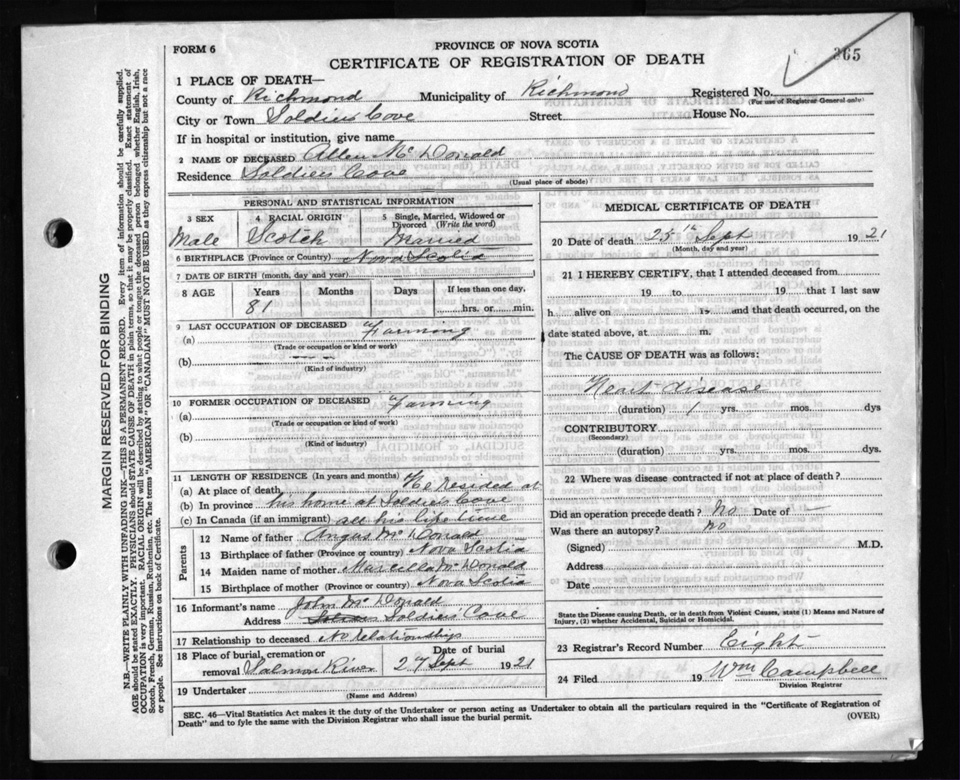 FORM 6
PROVINCE OF NOVA SCOTIA
CERTIFICATE OF REGISTRATION OF DEATH
365
1 PLACE OF DEATH—
County of Richmond Municipality of Richmond Registered No.
(For use of Registrar General only)
City or Town Soldiers Cove Street House No.
If in hospital or institution, give name
2 NAME OF DECEASED Allen Mc Donald
Residence Soldiers Cove
(Usual place of abode)
PERSONAL AND STATISTICAL INFORMATION
3 SEX 4 RACIAL ORIGIN 5 Single, Married, Widowed or Divorced (Write the word)
Male Scotch Married
6 BIRTHPLACE (Province or Country) Nova Scotia
7 DATE OF BIRTH (month, day and year)
8 AGE Years Months Days If less than one day,
81 hrs. or min.
9 LAST OCCUPATION OF DECEASED Farming
(a)
(Trade or occupation or kind or work)
(b) — — —
(Kind of industry)
10 FORMER OCCUPATION OF DECEASED Farming
(a)
(Trade or occupation or kind of work)
(b)
(Kind of industry)
11 LENGTH OF RESIDENCE (In years and months)
(a) At place of death He resided at
(b) In province his home at Soldiers Cove
(c) In Canada (if an immigrant) all his life time
Parents
12 Name of father Angus Mc Donald
13 Birthplace of father (Province or country) Nova Scotia
14 Maiden name of mother Marcella Mc Donald
15 Birthplace of mother (Province or country) Nova Scotia
16 Informant's name John Mc Donald
Address Soldiers Cove
17 Relationship to deceased No relationships
18 Place of burial, cremation or removal Salmon River Date of burial 27 Sept 1921
19 Undertaker
(Name and Address)
MEDICAL CERTIFICATE OF DEATH
20 Date of death 25th Sept 1921
(Month, day and year)
21 I HEREBY CERTIFY, that I attended deceased from
19 to 19 that I last saw
h alive on 19 and that death occurred, on the
date stated above, at m.
The CAUSE OF DEATH was as follows:
Heart disease
(duration) 1 yrs. mos. dys
CONTRIBUTORY
(Secondary)
(duration) yrs. mos. dys.
22 Where was disease contracted if not at place of death?
Did an operation precede death? No Date of —
Was there an autopsy? No
(Signed) M.D.
Address
Date
State the Disease causing Death, or in death from Violent Causes, state (1) Means and Nature of Injury, (2) whether Accidental, Suicidal or Homicidal.
23 Registrar's Record Number Eight
24 Filed 19 Wm Campbell
Division Registrar
SEC. 46—Vital Statistics Act makes it the duty of the Undertaker or person acting as Undertaker to obtain all the particulars required in the "Certificate of Registration of
Death" and to fyle the same with the Division Registrar who shall issue the burial permit.
(OVER)
MARGIN RESERVED FOR BINDING
N.B.—WRITE PLAINLY WITH UNFADING INK—THIS IS A PERMANENT RECORD. Every item of information should be carefully supplied.
AGE should be stated EXACTLY. PHYSICIANS should STATE CAUSE OF DEATH in plain terms, so that it may be properly classified. Exact statement of
OCCUPATION is very important. RACIAL ORIGIN will be described by stating to what people or tongue the deceased person belonged whether English, Irish,
Scotch, French, German, Russian, Ruthenian, etc. The terms "AMERICAN" OR "CANADIAN" MUST NOT BE USED as they express citizenship but not a race
or people. See instructions on back of Certificate.